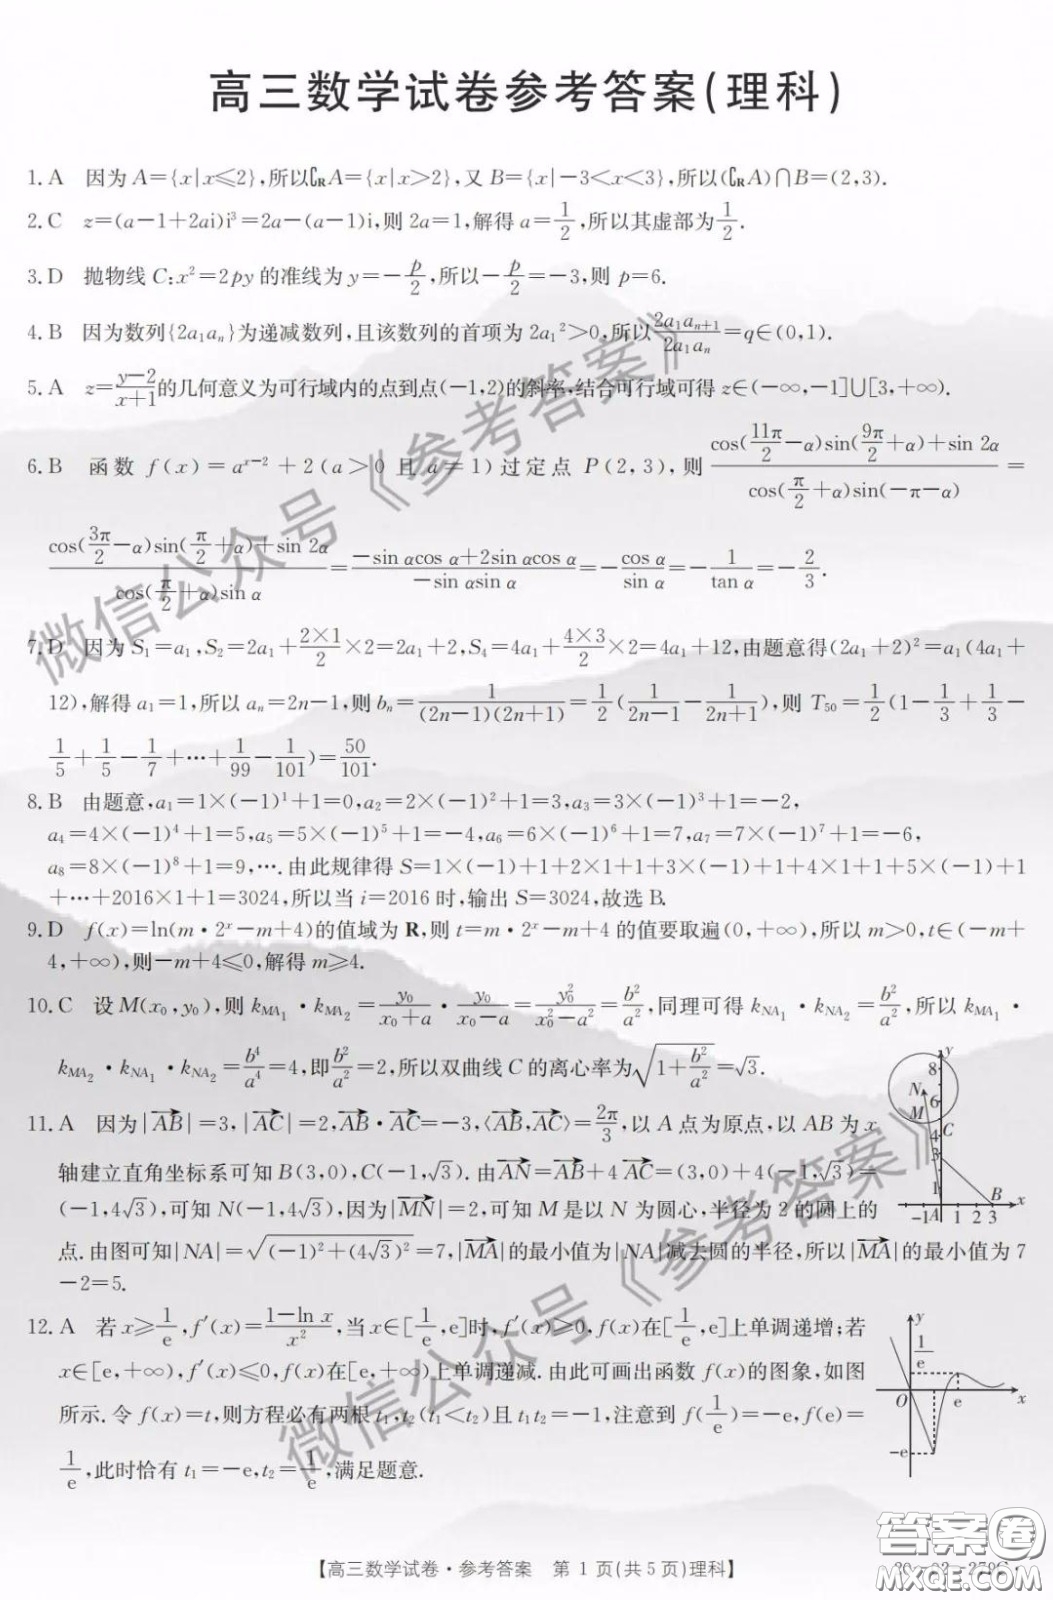 高三数学试卷参考答案(理科)
1.A 因为 A={x|x≤2},所以∁RA={x|x>2},又 B={x|-3<x<3},所以(∁RA)∩B=(2,3).
2.C z=(a-1+2ai)i³=2a-(a-1)i,则 2a=1,解得 a=1/2,所以其虚部为1/2.
3.D 抛物线 C:x²=2py 的准线为 y=-p/2,所以-p/2=-3,则 p=6.
4.B 因为数列{2a₁aₙ}为递减数列,且该数列的首项为 2a₁²>0,所以2a₁aₙ₊₁/2a₁aₙ=q∈(0,1).
5.A z=(y-2)/(x+1)的几何意义为可行域内的点到点(-1,2)的斜率,结合可行域可得 z∈(-∞,-1]∪[3,+∞).
6.B 函数 f(x)=aˣ⁻²+2(a>0 且 a≠1)过定点 P(2,3),则 [cos(11π/2-α)sin(9π/2+α)+sin 2α]/[cos(π/2+α)sin(-π-α)]=
[cos(3π/2-α)sin(π/2+α)+sin 2α]/[cos(π/2+α)sin α]=(-sin αcos α+2sin αcos α)/(-sin αsin α)=-cos α/sin α=-1/tan α=-2/3.
7.D 因为 S₁=a₁,S₂=2a₁+(2×1)/2×2=2a₁+2,S₄=4a₁+(4×3)/2×2=4a₁+12,由题意得(2a₁+2)²=a₁(4a₁+
12),解得 a₁=1,所以 aₙ=2n-1,则 bₙ=1/((2n-1)(2n+1))=1/2(1/(2n-1)-1/(2n+1)),则 T₅₀=1/2(1-1/3+1/3-
1/5+1/5-1/7+…+1/99-1/101)=50/101.
8.B 由题意,a₁=1×(-1)¹+1=0,a₂=2×(-1)²+1=3,a₃=3×(-1)³+1=-2,
a₄=4×(-1)⁴+1=5,a₅=5×(-1)⁵+1=-4,a₆=6×(-1)⁶+1=7,a₇=7×(-1)⁷+1=-6,
a₈=8×(-1)⁸+1=9,….由此规律得 S=1×(-1)+1+2×1+1+3×(-1)+1+4×1+1+5×(-1)+1
+…+2016×1+1=3024,所以当 i=2016 时,输出 S=3024,故选 B.
9.D f(x)=ln(m·2ˣ-m+4)的值域为 R,则 t=m·2ˣ-m+4 的值要取遍(0,+∞),所以 m>0,t∈(-m+
4,+∞),则-m+4≤0,解得 m≥4.
10.C 设 M(x₀,y₀),则 kMA₁·kMA₂=y₀/(x₀+a)·y₀/(x₀-a)=y₀²/(x₀²-a²)=b²/a²,同理可得 kNA₁·kNA₂=b²/a²,所以 kMA₁·
kMA₂·kNA₁·kNA₂=b⁴/a⁴=4,即b²/a²=2,所以双曲线 C 的离心率为√(1+b²/a²)=√3.
11.A 因为|AB→|=3,|AC→|=2,AB→·AC→=-3,⟨AB→,AC→⟩=2π/3,以 A 点为原点,以 AB 为 x
轴建立直角坐标系可知 B(3,0),C(-1,√3).由AN→=AB→+4AC→=(3,0)+4(-1,√3)=
(-1,4√3),可知 N(-1,4√3),因为|MN→|=2,可知 M 是以 N 为圆心,半径为 2 的圆上的
点.由图可知|NA|=√((-1)²+(4√3)²)=7,|MA→|的最小值为|NA|减去圆的半径,所以|MA→|的最小值为 7
-2=5.
y 8 N 6 M 4 C 3 1 B -1 A 1 2 3 x
12.A 若 x≥1/e,f′(x)=(1-ln x)/x²,当 x∈[1/e,e]时,f′(x)≥0,f(x)在[1/e,e]上单调递增;若
x∈[e,+∞),f′(x)≤0,f(x)在[e,+∞)上单调递减.由此可画出函数 f(x)的图象,如图
所示.令 f(x)=t,则方程必有两根 t₁,t₂(t₁<t₂)且 t₁t₂=-1,注意到 f(1/e)=-e,f(e)=
1/e,此时恰有 t₁=-e,t₂=1/e,满足题意.
y 1/e O e x -e
微信公众号《参考答案》
微信公众号《参考答案》
【高三数学试卷·参考答案 第 1 页(共 5 页)理科】
答案圈
MXQE.COM